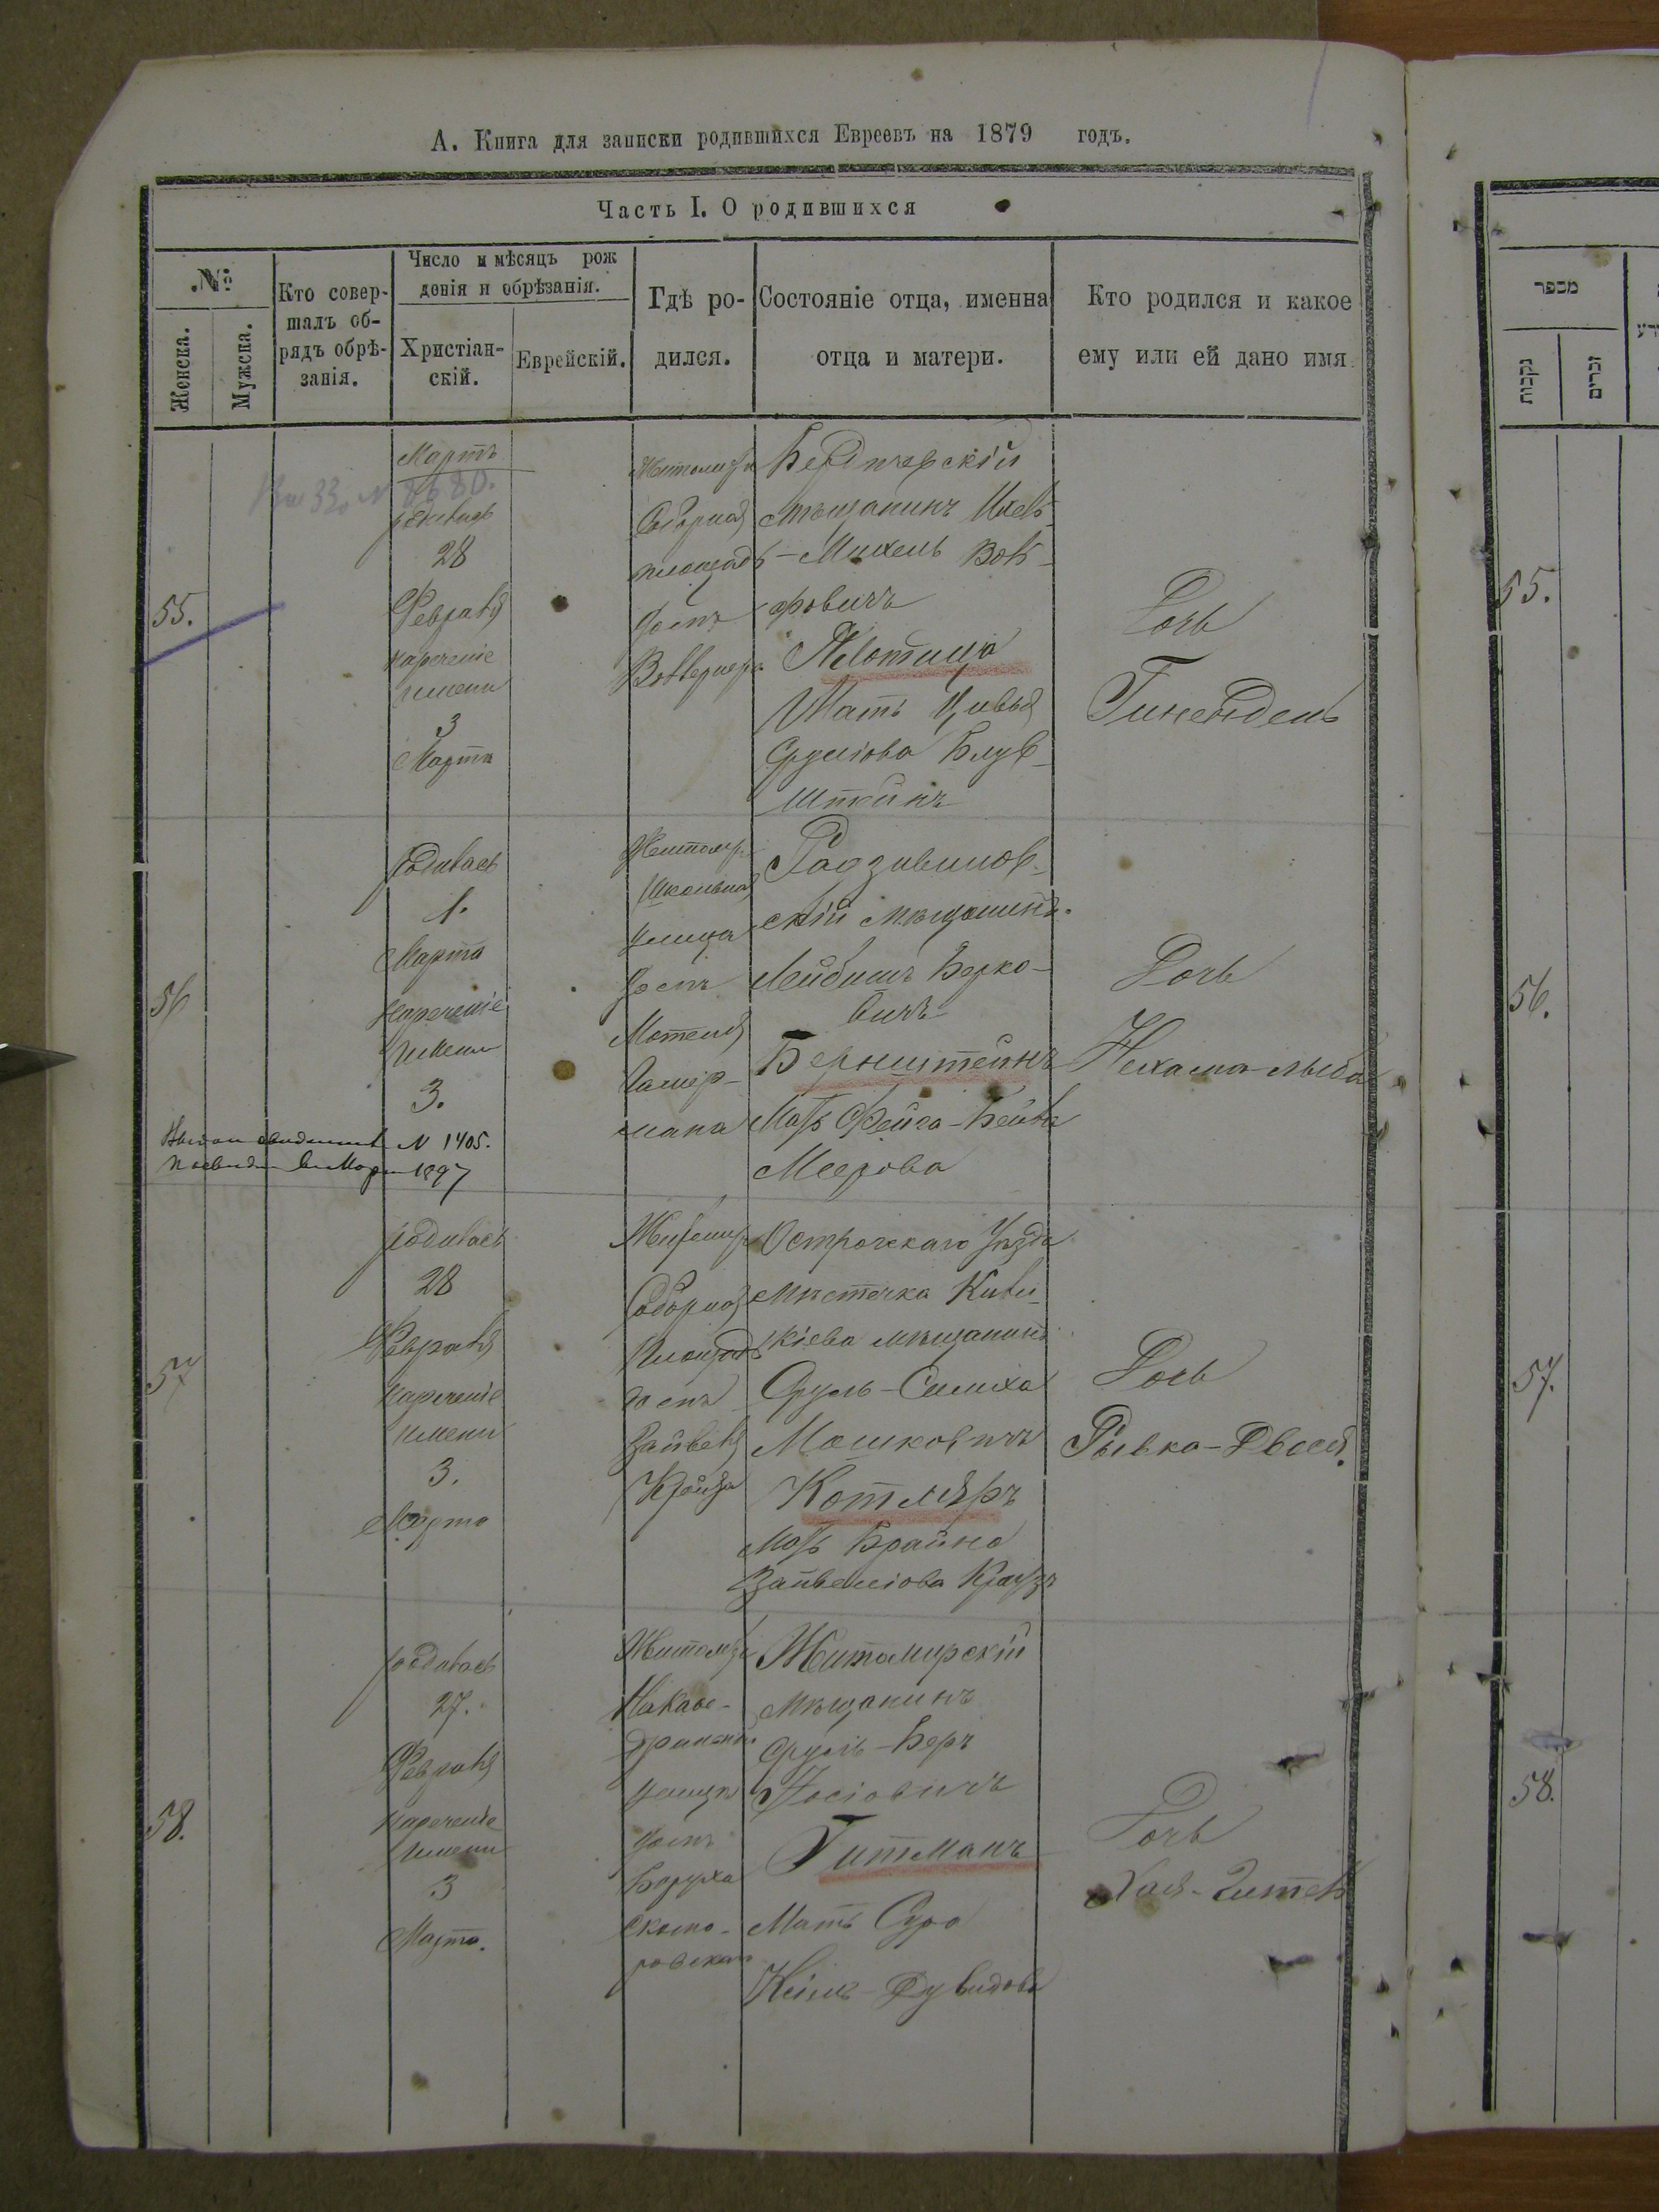 А. Книга для записки родившихся Евреевъ на 1879 годъ.
Часть I. О родившихся
№
Женска.
Мужска.
Кто совер-
шалъ об-
рядъ обрѣ-
занія.
Число и мѣсяцъ рож
денія и обрѣзанія.
Христіан-
скій.
Еврейскій.
Гдѣ ро-
дился.
Состояніе отца, именна
отца и матери.
Кто родился и какое
ему или ей дано имя
55.
Мартъ
родилась
28
Февраля
нареченіе
имени
3
Марта
Житомиръ
Соборная
площадь
домъ
Бердичевскій
мѣщанинъ
-Михель Воль
фовичъ
Мать Цивья
Срулiова Блув-
штейнъ
Дочь
Гинендель
56
родилась
1.
Марта
нареченіе
имени
3.
№ 1405.
1897
Житомир.
Школьная
улица
домъ
Мотеля
Гамер-
мана
Радзивилов-
скій мѣщанинъ.
Лейбишъ Берко-
вичъ
Бернштейнъ
Мать Фейга-Бейла
Меерова
Дочь
Нехама-Лыба
57
родилась
28
Февраля
нареченіе
имени
3.
Марта
Житомир
Соборная
Площадь
домъ
Зайвеля
Острогскаго Уѣзда
мѣстечка Кили-
кіева мѣщанинъ
Сруль-Симха
Мошковичъ
Котляръ
Мать Брайна
Зайвелiова
Дочь
Рывка-Двося.
58.
родилась
27.
Февраля
нареченіе
имени
3
Марта.
Житомиръ
улица
домъ
Боруха
Скомо-
ровскаго
Житомирскій
мѣщанинъ
Сруль-Беръ
Іосiовичъ
Гитманъ
Мать Сура
Дувидова
Дочь
Хая-Гитель
מספר
נקבות
זכרים
55.
56.
57.
58.